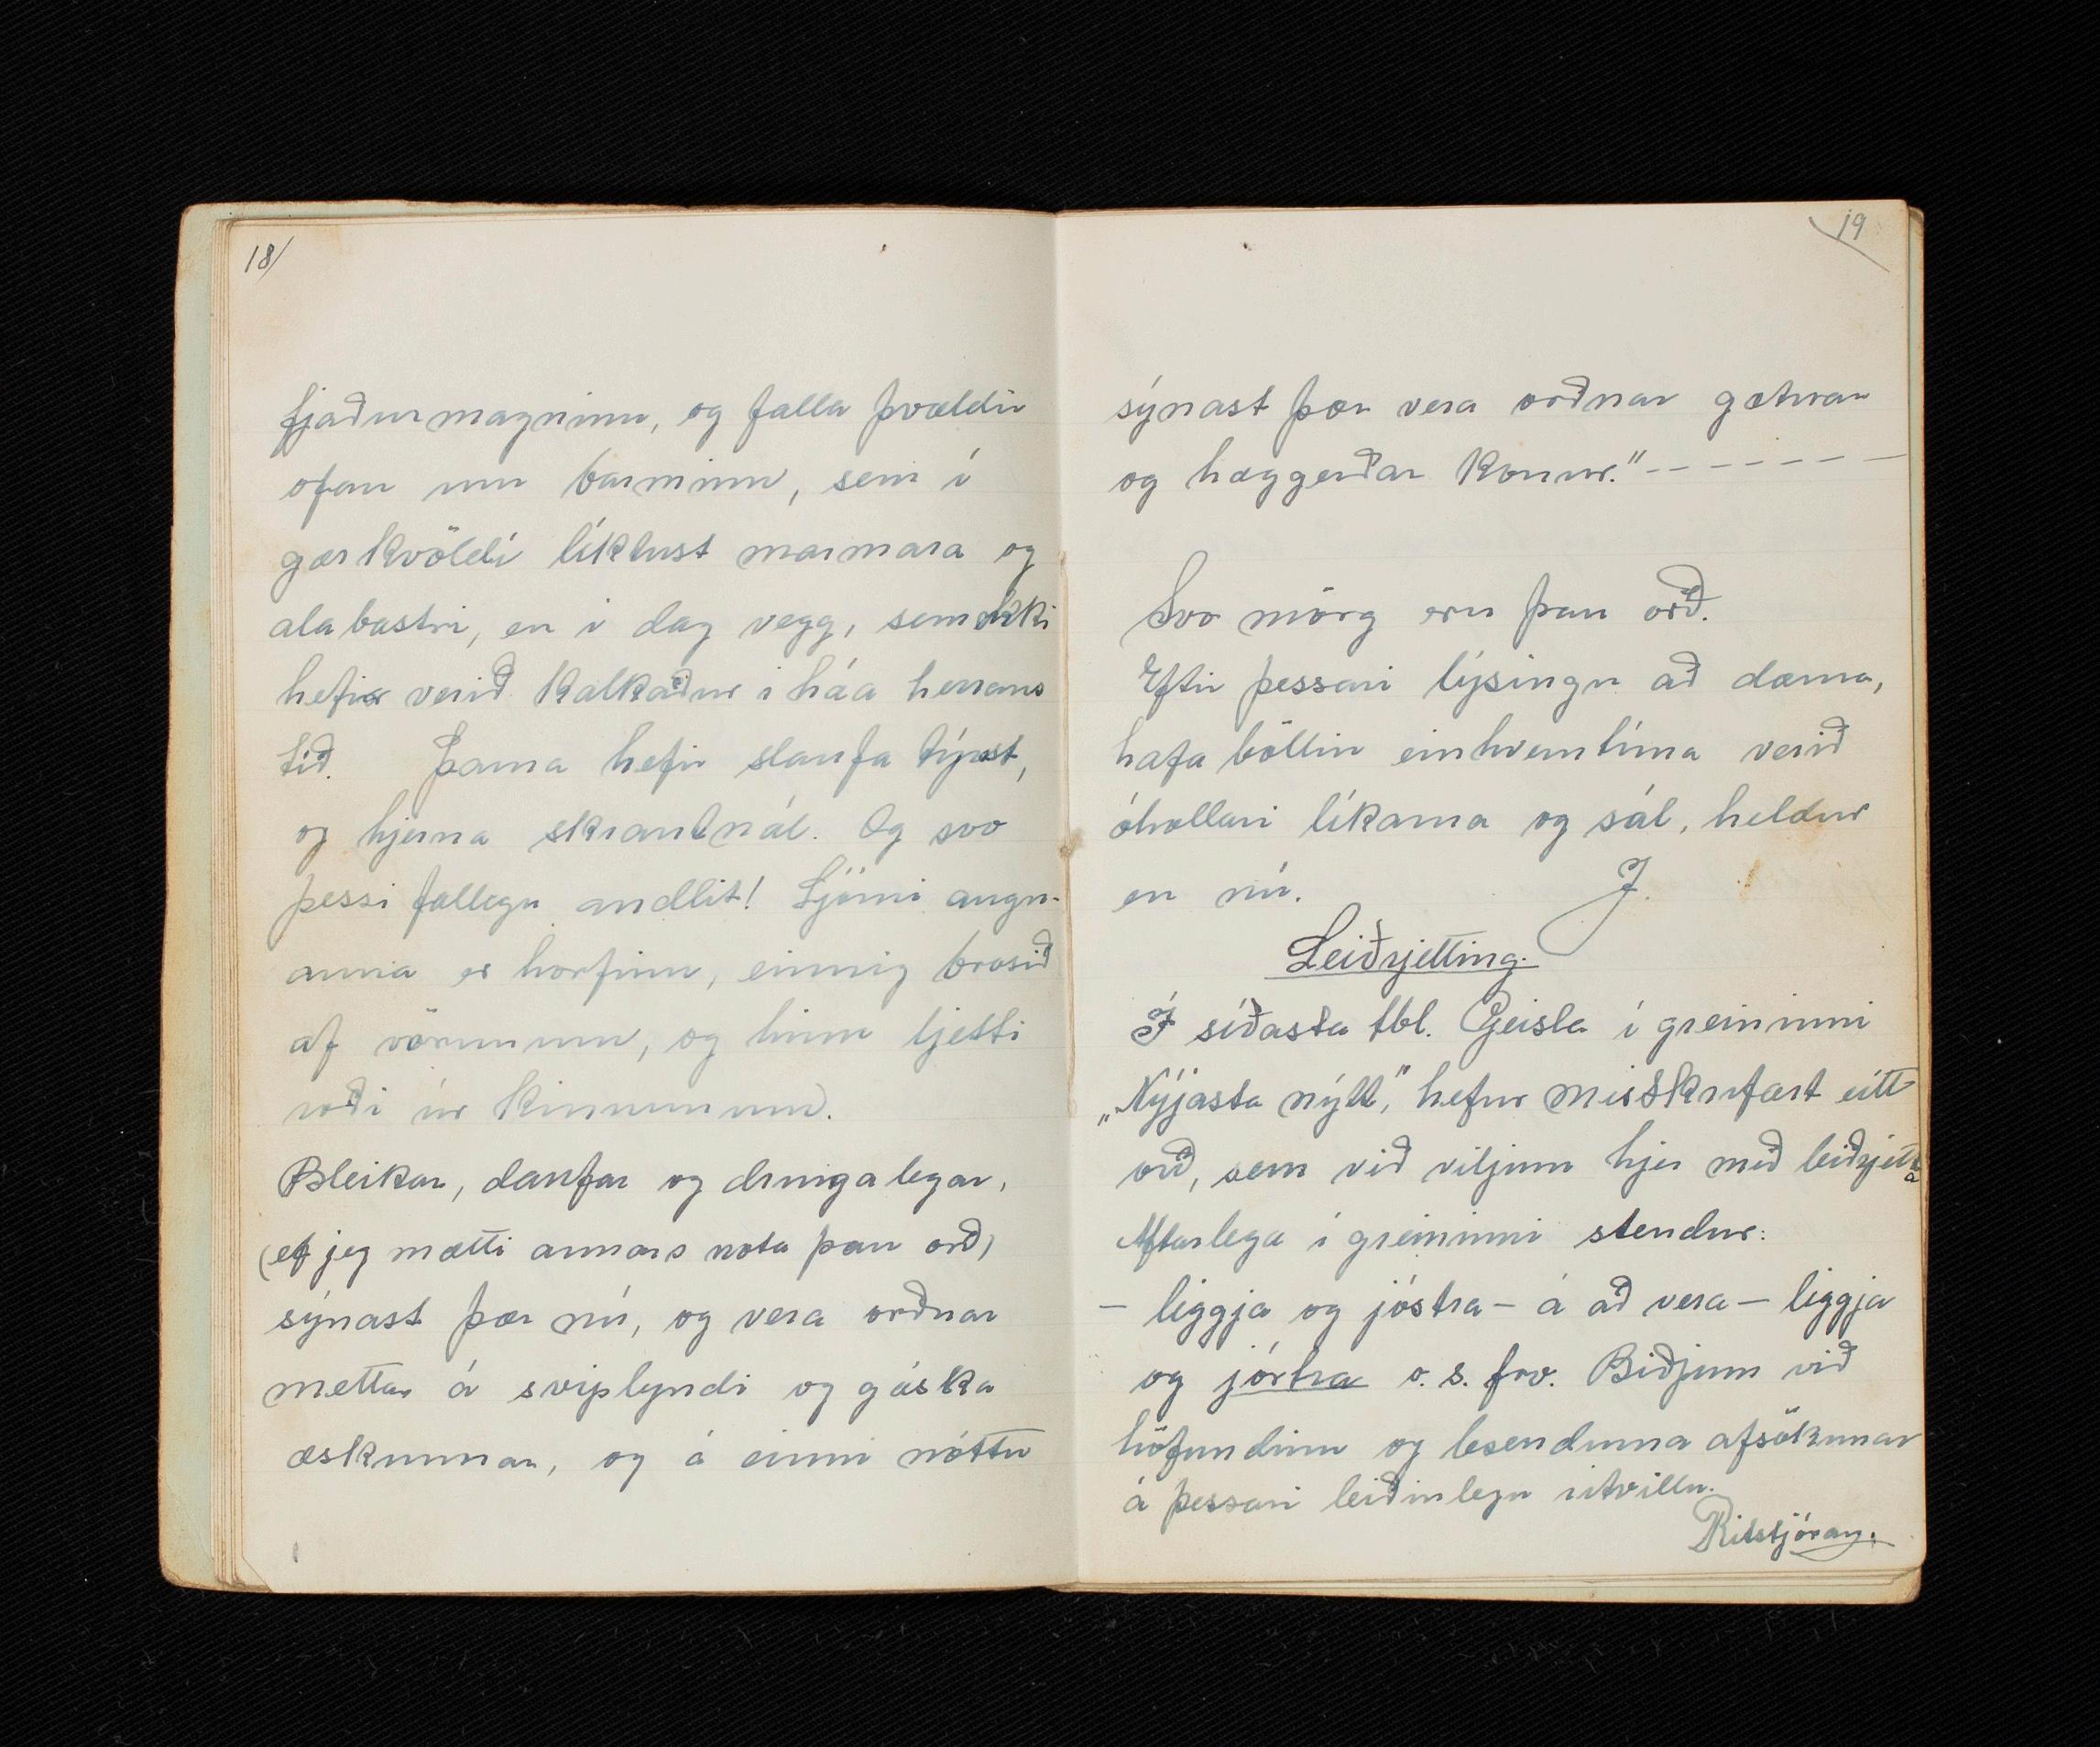 18/
fjaðurmagninu, og falla þvældir
ofan um barminn, sem í
gærkvöldi líktust marmara og
alabastri, en í dag vegg, sem ekki
hefir verið kalkaður í háa herrans
tíð. Þarna hefir slaufa týnst,
og hjerna skrautnál. Og svo
þessi fallegu andlit! Ljómi augn-
anna er horfinn, einnig brosið
af vörunum, og hinn ljetti
roði úr kinnunum.
Bleikar, daufar og drungalegar,
(ef jeg mætti annars nota þau orð)
sýnast þær nú, og vera orðnar
mettar á sviplyndi og gáska
æskunnar, og á einni nóttu
19
sýnast þær vera orðnar gætnar
og hæggerðar konur." - - - - - -
Svo mörg eru þau orð.
Eftir þessari lýsingu að dæma,
hafa böllin einhverntíma verið
óhollari líkama og sál, heldur
en nú. J.
Leiðrjetting.
Í síðasta tbl. Geisla í greininni
„Nýjasta nýtt," hefur misskrifast eitt
orð, sem við viljum hjer með leiðrjetta
Aftarlega í greininni stendur:
- liggja og jóstra - á að vera - liggja
og jórtra o.s. frv. Biðjum við
höfundinn og lesenduma afsökunar
á þessari leiðinlegu ritvillu.
Ritstjóran.